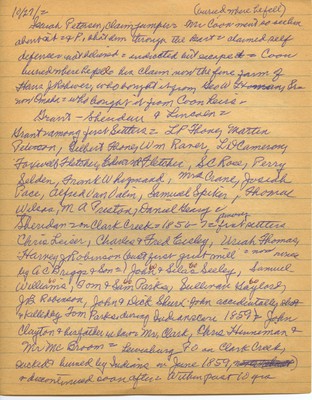 10/29/2 (buried where he fell)
Josiah Peterson, Claim Jumper = Mr Coon went to see him
about it = & P. shot him through the heart = claimed self
defense = not believed = indicted but escaped = Coon
buried where he fell on his claim now the fine farm of
Hans J Rohwer, who bought it from Geo W
now Omaha = who bought it from Coon heirs =
Grant = Sheridan & Lincoln =
Grant = among first Settlers = L F Thone, Martin
Peterson, Gilbert Thone, Wm Raver, L D Cameron,
Forswith Fletcher, Edward Fletcher, S C Rose, Perry
Selden, Frank Whipmand, Mrs Crane, Josiah
Pace, Alfred Van Valin, Samuel Spiker, Thomas
Wilson, M A Preston, Daniel Geary =
Sheridan = on Clark Creek = 1856-7 = first settlers
Chris Leiser, Charles & Fred Eisley, Uriah Thomas,
Harvey J Robinson built first grist mill = now owned
by A C Briggs & Son = John & Silas Seeley, Samuel
Williams, Tom & Jim Parks, Sullivan Gaylord,
J B Robinson, John & Dick Shurl = John accidentally shot
& killed by Tom Parks during Indian scare 1859 = John
Clayton & his father in law Mr. Clark, Chris Heineman &
Mr Mc Broom = Lewisburg P O on Clark Creek,
sacked & burned by Indians in June 1859,
& discontinued soon after = Within past 10 yrs